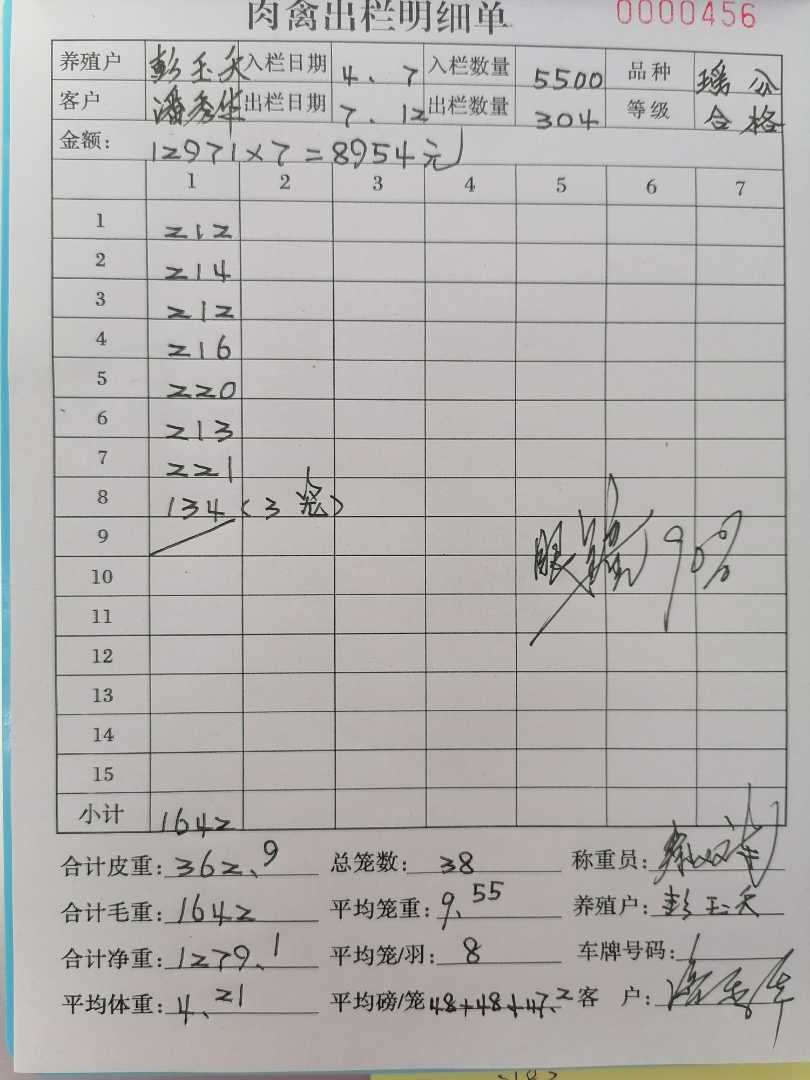 肉禽出栏明细单 0000456
养殖户 彭玉天 入栏日期 4、7 入栏数量 5500 品种 瑶公
客户 潘秀华 出栏日期 7.12 出栏数量 304 等级 合格
金额: 12971×7=8954元
1 2 3 4 5 6 7
1 212
2 214
3 212
4 216
5 220
6 213
7 221
8 134(3笼)
9
10 90%
11
12
13
14
15
小计 1642
合计皮重: 362.9 总笼数: 38 称重员:
合计毛重: 1642 平均笼重: 9.55 养殖户: 彭玉天
合计净重: 1279.1 平均笼/羽: 8 车牌号码:
平均体重: 4.21 平均磅/笼 48+48+47.2 客 户: 潘秀华